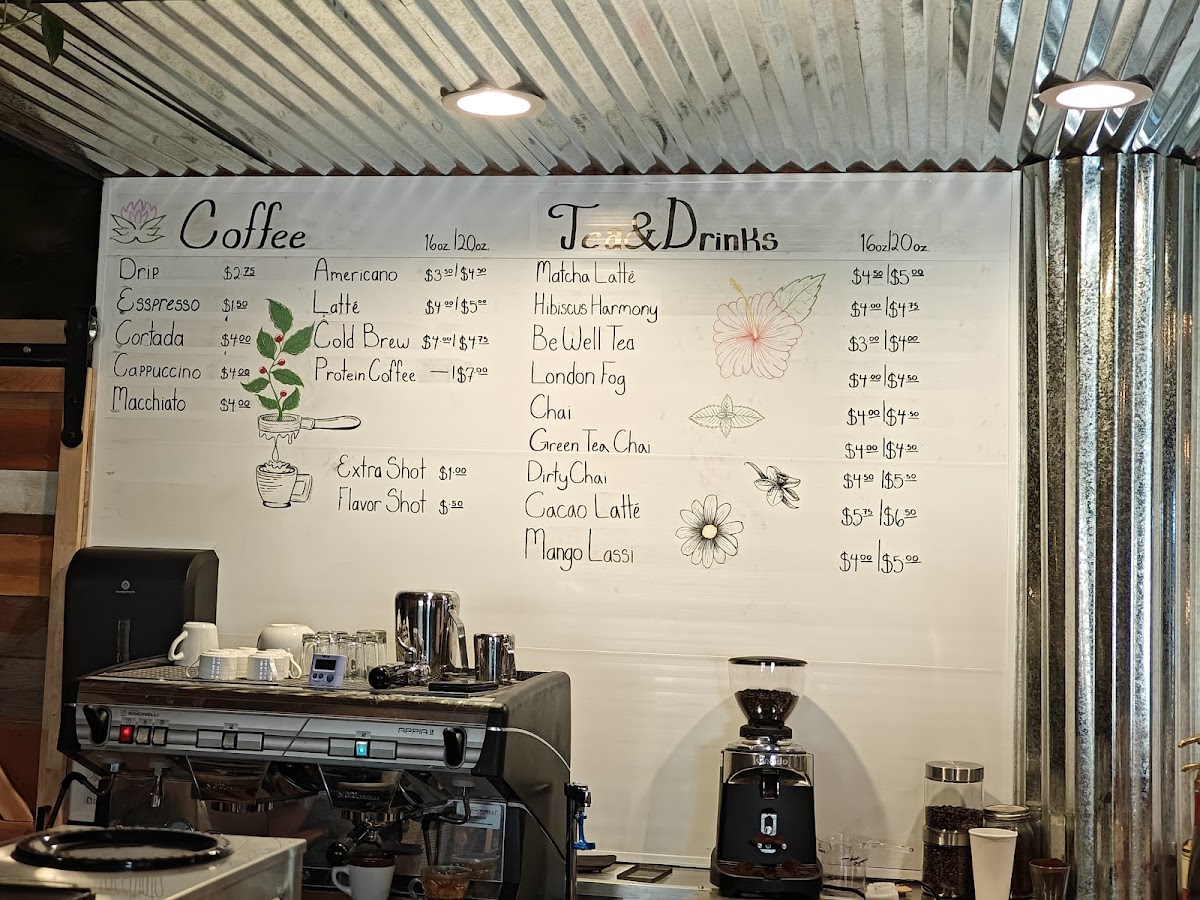 Coffee 16oz/20oz.
Drip $2.75
Esspresso $1.50
Cortada $4.00
Cappuccino $4.00
Macchiato $4.00
Americano $3.50/$4.50
Latté $4.00/$5.00
Cold Brew $4.00/$4.75
Protein Coffee —/$7.00
Extra Shot $1.00
Flavor Shot $.50
Tea & Drinks 16oz/20oz.
Matcha Latté $4.50/$5.00
Hibiscus Harmony $4.00/$4.75
Be Well Tea $3.00/$4.00
London Fog $4.00/$4.50
Chai $4.00/$4.50
Green Tea Chai $4.00/$4.50
Dirty Chai $4.50/$5.50
Cacao Latté $5.75/$6.50
Mango Lassi $4.00/$5.00
SIMONELLI
APPIA